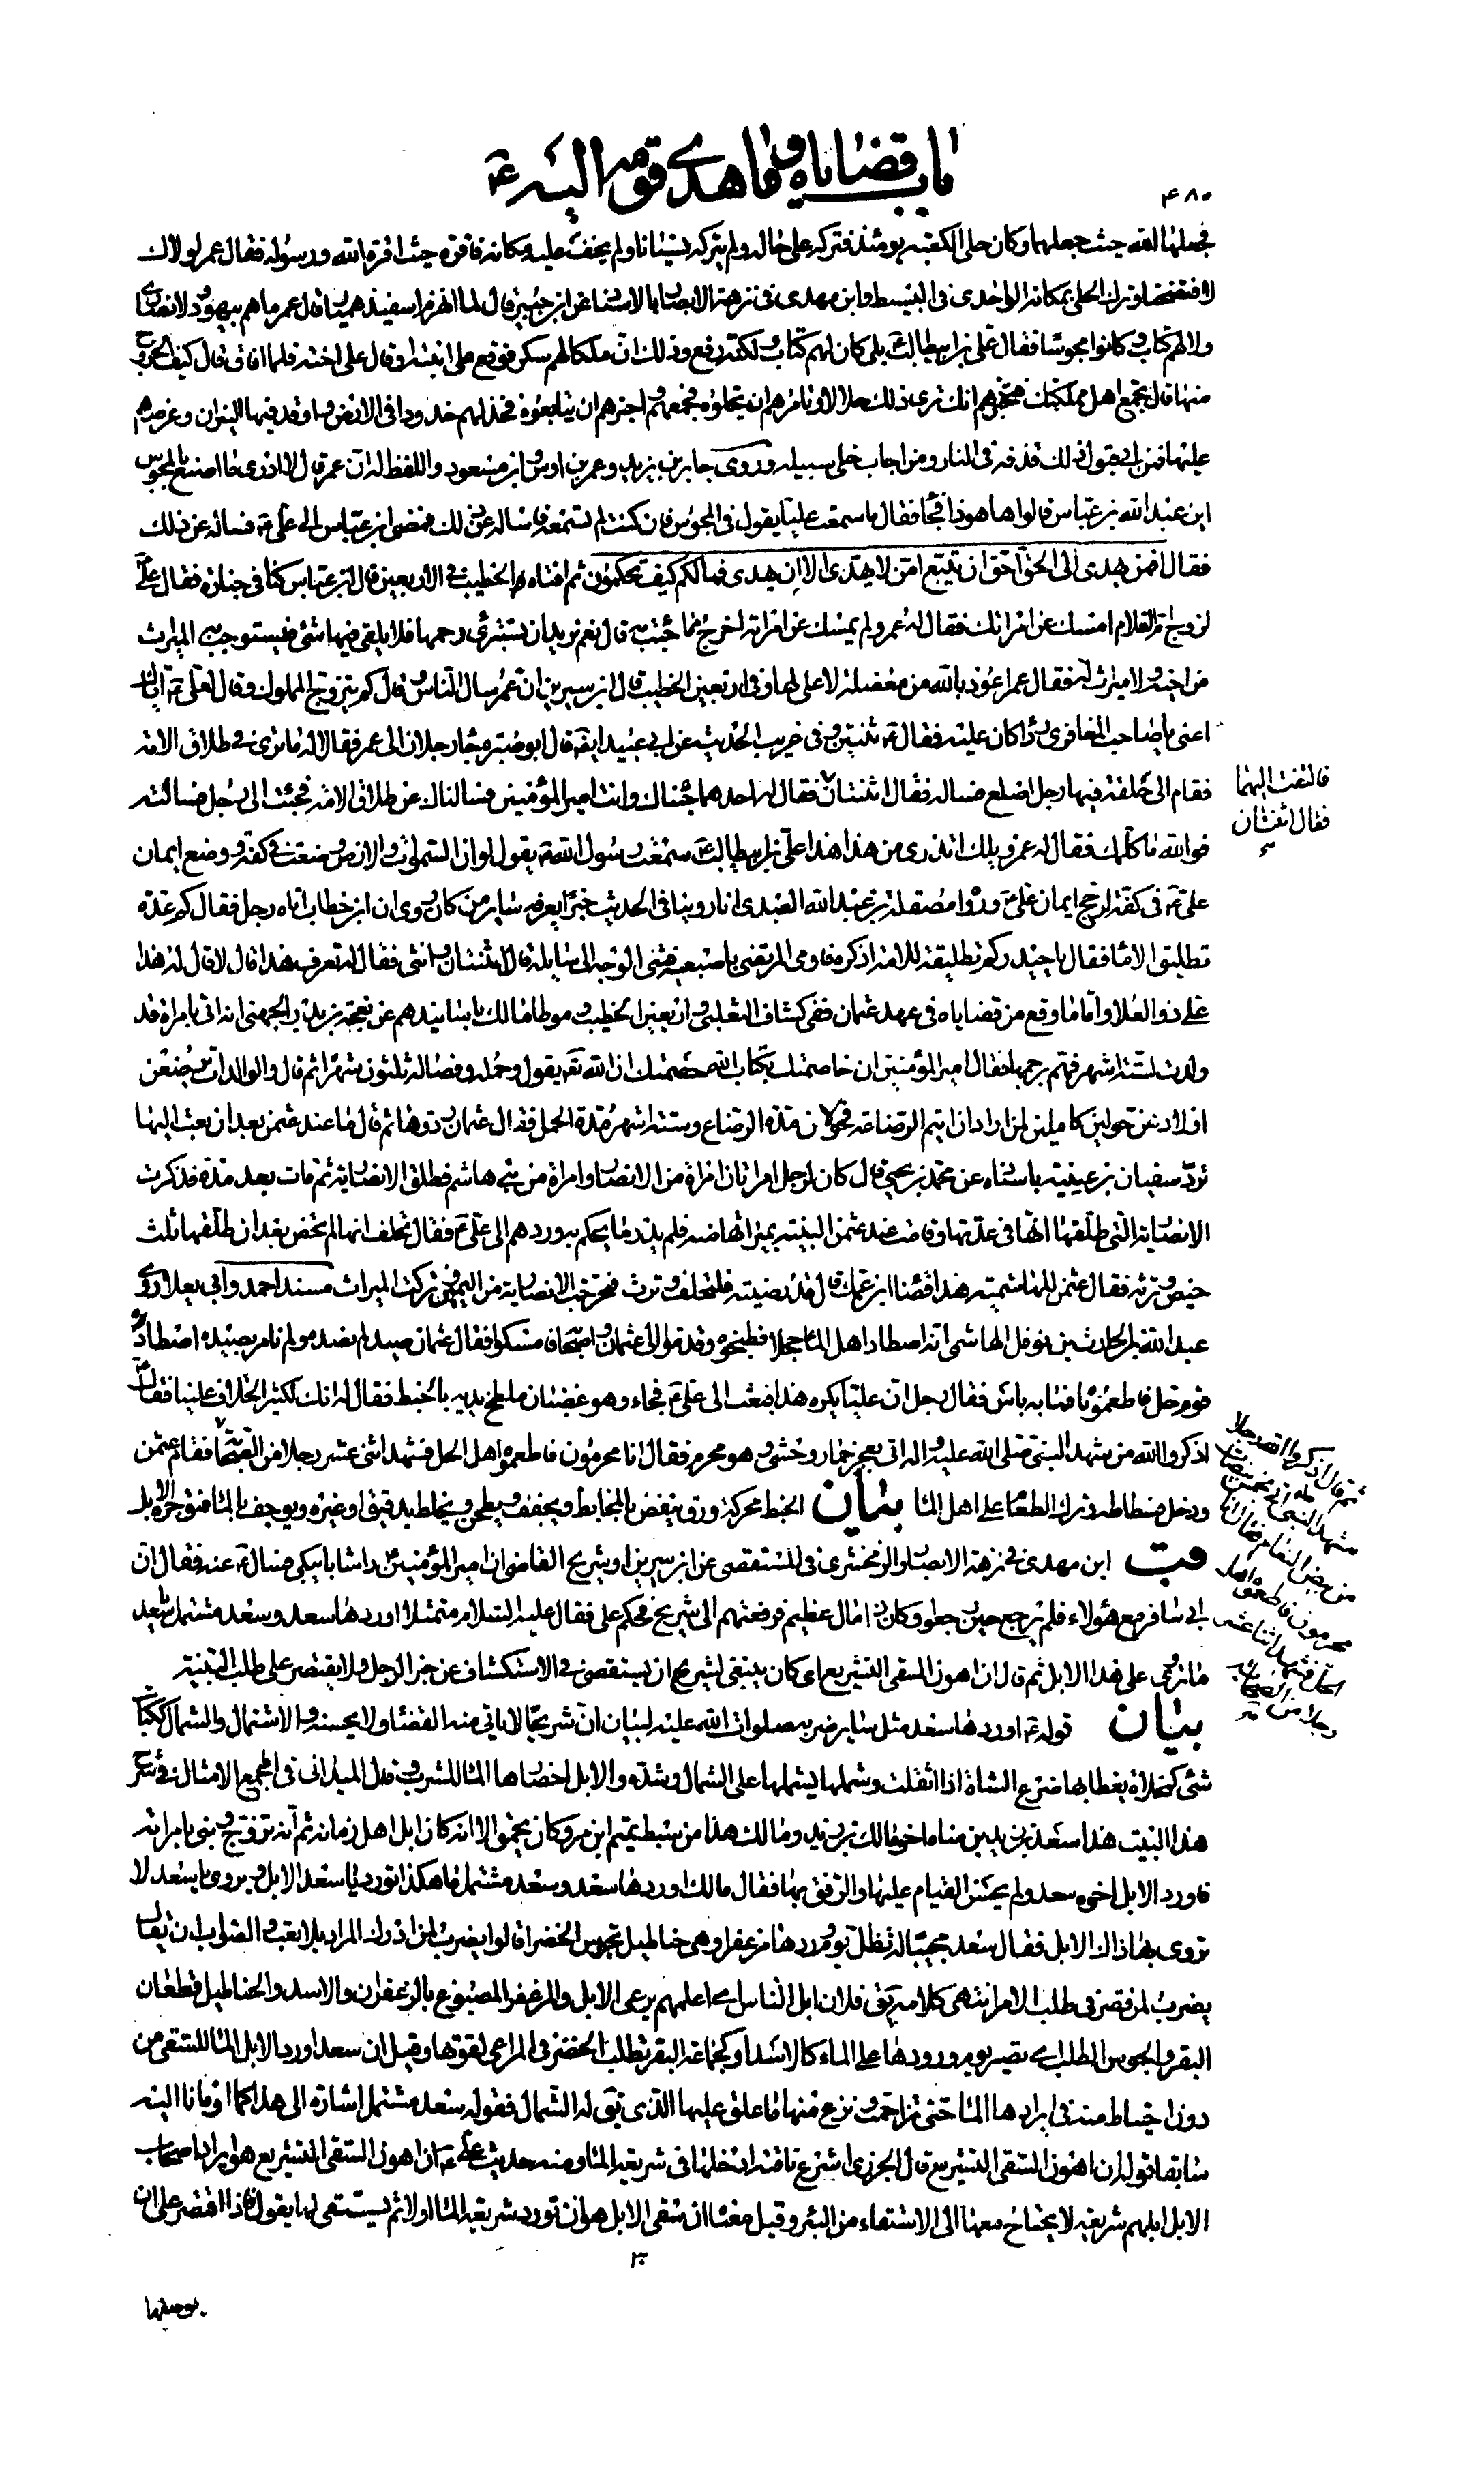 باب قضاياه وما هدى قومه اليه ع
۴۸۰
فجعلها الله حيث جعلها وكان حلى الكعبة يومئذ فتركه على حاله ولم يتركه نسيانا ولم يخف عليه مكانه فاقره حيث اقره الله ورسوله فقال عمر لولاك
لافتضحنا وترك الحلى بمكانه الواحدى فى البسيط وابن مهدى فى نزهة الابصار بالاسناد عن ابن جبير قال لما انهزم اسفيذهميار قال عمر ما هم بيهود ولا نصارى
ولا لهم كتاب وكانوا مجوسا فقال على بن ابيطالب ع بلى كان لهم كتاب ولكنه رفع وذلك ان ملكا لهم سكر فوقع على ابنته او قال على اخته فلما افاق قال كيف الخروج
منها قال تجمع اهل مملكتك فتخبرهم انك ترى ذلك حلالا وتامرهم ان يحلوه فجمعهم واخبرهم ان يتابعوه فخد لهم خدودا فى الارض واوقد فيها النيران وعرضهم
عليها فمن ابى قبول ذلك قذفه فى النار ومن اجاب خلى سبيله وروى جابر بن يزيد وعمر بن اوس وابن مسعود واللفظ له ان عمر قال لا ادرى ما اصنع بالمجوس
اين عبد الله بن عباس قالوا ها هو ذا فجاء فقال ما سمعت عليا يقول فى المجوس فان كنت لم تسمعه فاساله عن ذلك فمضى ابن عباس الى على ع فساله عن ذلك
فقال افمن يهدى الى الحق احق ان يتبع امن لا يهدى الا ان يهدى فما لكم كيف تحكمون ثم افتاه الخطيب فى الاربعين قال ابن عباس كنا فى جنازة فقال على ع
لزوج ام الغلام امسك عن امراتك فقال له عمر ولم يمسك عن امراته اخرج مما جئت به قال نعم نريد ان تستبرئ رحمها فلا يلقى فيها شئ فيستوجب به الميراث
من اخيه ولا ميراث له فقال عمر اعوذ بالله من معضلة لا على لها وفى اربعين الخطيب قال ابن سيرين ان عمر سال الناس وقال كم يتزوج المملوك وقال لعلى ع اياك
اعنى يا صاحب المغافرى رداء كان عليه فقال ع ثنتين وفى غريب الحديث عن ابى عبيد ايضا قال ابو صبرة جاء رجلان الى عمر فقالا له ما ترى فى طلاق الامة
فقام الى حلقة فيها رجل اصلع فساله فقال اثنتان فقال له احدهما جئناك وانت امير المؤمنين فسالناك عن طلاق الامة فجئت الى رجل فسالته
فالتفت اليهما
فقال اثنتان
فوالله ما كلمك فقال له عمر ويلك اتدرى من هذا هذا على بن ابيطالب ع سمعت رسول الله ص يقول لو ان السموات والارض وضعت فى كفة ووضع ايمان
على ع فى كفة لرجح ايمان على ع ورواه مصقلة بن عبد الله العبدى انا روينا فى الحديث خبرا يعرفه سائر من كان روى ان ابن خطاب اتاه رجل فقال كم عدة
تطليق الاماء فقال يا حيدر كم تطليقة للامة اذكره فاومى المرتضى باصبعيه فثنى الوجه الى سائله قال اثنتان وانثنى فقال له تعرف هذا قال لا قال له هذا
على ذو العلا واما ما وقع من قضاياه فى عهد عثمان ففى كشاف الثعلبى واربعين الخطيب وموطا مالك باسانيدهم عن نعجة بن بدر الجهنى انه اتى بامراة قد
ولدت لستة اشهر فهم برجمها فقال امير المؤمنين ان خاصمتك بكتاب الله خصمتك ان الله تع يقول وحمله وفصاله ثلثون شهرا ثم قال والوالدات يرضعن
اولادهن حولين كاملين لمن اراد ان يتم الرضاعة فحولان مدة الرضاع وستة اشهر مدة الحمل فقال عثمان ردوها ثم قال ما عند عثمن بعد ان بعث اليها
تردّ سفيان بن عيينة باسناده عن محمد بن يحيى قال كان لرجل امراتان امراة من الانصار وامراة من بنى هاشم فطلق الانصارية ثم مات بعد مدة فذكرت
الانصارية التى طلقها انها فى عدتها وقامت عند عثمن البينة بميراثها منه فلم يدر ما يحكم به وردهم الى على ع فقال تحلف انها لم تحض بعد ان طلقها ثلث
حيض وترثه فقال عثمن للهاشمية هذا قضاء ابن عمك قال قد رضيته فلتحلف وترث فتحرجت الانصارية من اليمين وتركت الميراث مسند احمد وابى يعلا روى
عبد الله بن الحارث بن نوفل الهاشمى انه اصطاد اهل الماء حجلا فطبخوه وقدموا الى عثمان واصحابه فامسكوا فقال عثمان صيد لم نصده ولم نامر بصيده اصطاده
قوم حل فاطعموناه فما به باس فقال رجل ان عليا يكره هذا فبعث الى على ع فجاء وهو غضبان ملطخ يديه بالخبط فقال له انك لكثير الخلاف علينا فقال ع
اذكروا الله من شهد النبى صلى الله عليه واله اتى بعجز حمار وحشى وهو محرم فقال انا محرمون فاطعموه اهل الحل فشهد اثنى عشر رجلا من الصحابة فقام عثمن
ودخل فسطاطه وترك الطعام على اهل الماء بيان الخبط محركة ورق ينفض بالمخابط ويجفف ويطحن ويخلط بدقيق او غيره ويوخف بالماء فتوجره الابل
ثم قال اذكروا الله رجلا
شهد النبى اتى بخمس بيضات
من بيض النعام فقال انا
محرمون فاطعموه اهل
الحل فشهد اثنا عشر
رجلا من الصحابة
قب ابن مهدى فى نزهة الابصار والزمخشرى فى المستقصى عن ابن سيرين او شريح القاضى ان امير المؤمنين راى شابا يبكى فسال ع عنه فقال ان
ابى سافر مع هؤلاء فلم يرجع حين رجعوا وكان ذا مال عظيم فرفعتهم الى شريح فحكم على فقال عليه السلام متمثلا اوردها سعد وسعد مشتمل يا سعد
ما تروى على هذا الابل ثم قال ان اهون السقى التشريع اى كان ينبغى لشريح ان يستقصى فى الاستكشاف عن خبر الرجل ولا يقتصر على طلب البينة
بيان قوله ع اوردها سعد مثل سائر ضربه صلوات الله عليه لبيان ان شريحا لا ياتى منه القضاء ولا يحسنه والاشتمال والشمال ككتاب
شئ كمخلاة يغطا بها ضرع الشاة اذا اثقلت وشملها يشملها على الشمال وشده والابل احضارها الماء للشرب قال الميدانى فى المجمع الامثال فى شرح
هذا البيت هذا سعد بن زيد بن مناة اخو مالك بن زيد ومالك هذا من سبط تميم ابن مر وكان يحمق الا انه كان ابل اهل زمانه ثم انه تزوج وبنى بامراته
فاورد الابل اخوه سعد ولم يحسن القيام عليها والرفق بها فقال مالك اوردها سعد وسعد مشتمل ما هكذا تورد يا سعد الابل ويروى يا سعد لا
تروى بهذاك الابل فقال سعد مجيبا له تظل يوم وردها مزعفرا وهى خناطيل تجوس الخضرا قالوا يضرب لمن ادرك المراد بلا تعب والصواب ان يقال
يضرب لمن قصر فى طلب الامر انتهى كلامه يق فلان ابل الناس اى اعلمهم برعى الابل والمزعفر المصبوغ بالزعفران والاسد والخناطيل قطعان
البقر والجوس الطلب اى تصير يوم ورودها على الماء كالاسد او كجماعة البقر تطلب الخضر فى المراعى لقوتها وقيل ان سعدا اورد الابل الماء للسقى من
دون احتياط منه فى ايرادها الماء حتى تزاحمت ونزع منها ما علق عليها الذى يق له الشمال فقوله سعد مشتمل اشارة الى هذا كما اومانا اليه
سابقا قوله ان اهون السقى التشريع قال الجزرى اشرع ناقته ادخلها فى شريعة الماء ومنه حديث على ع ان اهون السقى التشريع هو ايراد اصحاب
الابل ابلهم شريعة لا يحتاج معها الى الاستقاء من البئر وقيل معناه ان سقى الابل هو ان تورد شريعة الماء اولا ثم يستقى لها يقول فاذا اقتصر على ان
۳
يوصلها